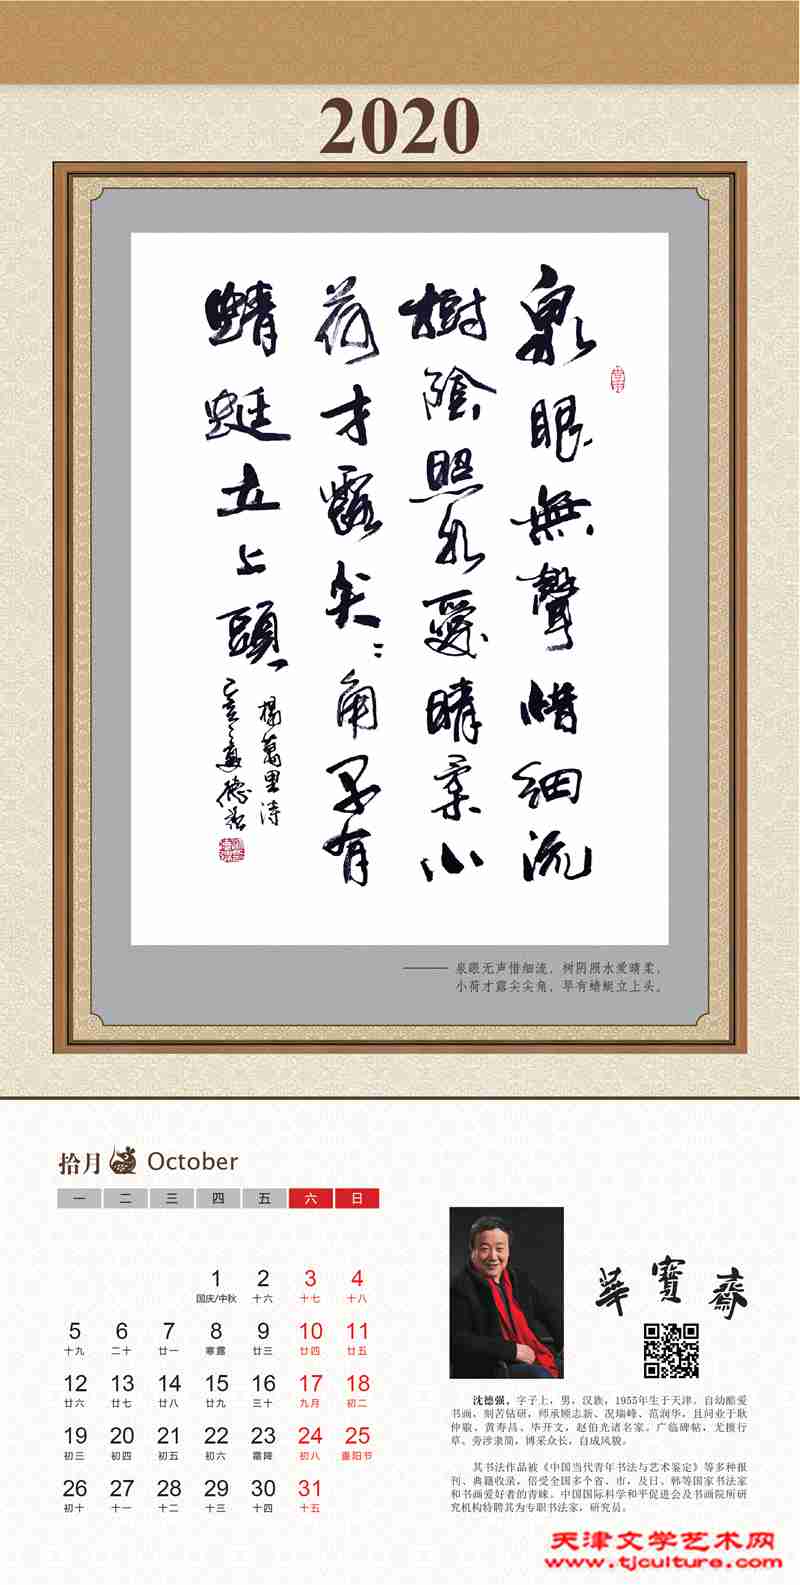 2020
泉眼無聲惜細流
樹陰照水愛晴柔小
荷才露尖〻角早有
蜻蜓立上頭
楊萬里詩
己亥之夏德强
———— 泉眼无声惜细流，树阴照水爱晴柔，
小荷才露尖尖角，早有蜻蜓立上头。
拾月 October
一 二 三 四 五 六 日
1 2 3 4
国庆/中秋 十六 十七 十八
5 6 7 8 9 10 11
十九 二十 廿一 寒露 廿三 廿四 廿五
12 13 14 15 16 17 18
廿六 廿七 廿八 廿九 三十 九月 初二
19 20 21 22 23 24 25
初三 初四 初五 初六 霜降 初八 重阳节
26 27 28 29 30 31
初十 十一 十二 十三 十四 十五
華寶齋
沈德强，字子上，男，汉族，1955年生于天津。自幼酷爱
书画，刻苦钻研，师承顾志新、况瑞峰、范润华，且问业于耿
仲敭、黄寿昌、毕开文，赵伯光诸名家。广临碑帖，尤擅行
草，旁涉隶简，博采众长，自成风貌。
其书法作品被《中国当代青年书法与艺术鉴定》等多种报
刊、典籍收录，倍受全国多个省、市，及日、韩等国家书法家
和书画爱好者的青睐。中国国际科学和平促进会及书画院所研
究机构特聘其为专职书法家，研究员。
天津文学艺术网
www.tjculture.com